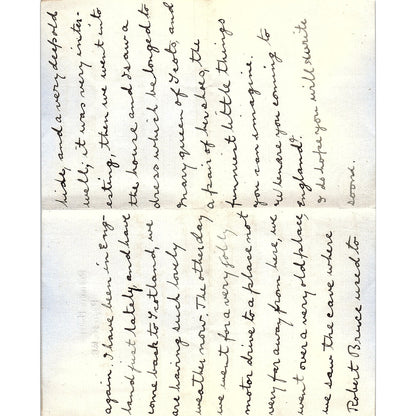 again. I have been in Eng-
land just lately and have
come back to Scotland, we
are having such lovely
weather now. The other day
we went for a very jolly
motor drive to a place not
very far away from here, we
went over a very old place,
we saw the cave where
Robert Bruce used to
hide, and a very deep old
well, it was very inter-
esting, then we went into
the house and I saw a
dress which belonged to
Mary queen of Scots, and
a pair of her shoes, the
funniest little things
you can imagine.
When are you coming to
England?
I do hope you will write
soon.